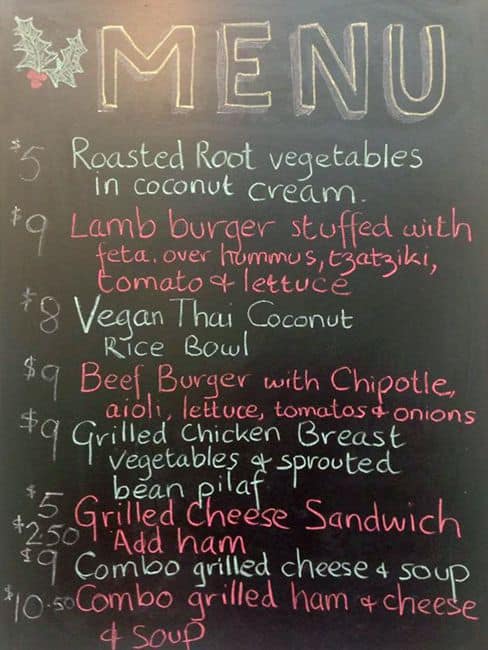 MENU
$5 Roasted Root vegetables
in coconut cream.
$9 Lamb burger stuffed with
feta. over hummus, tzatziki,
tomato & lettuce
$8 Vegan Thai Coconut
Rice Bowl
$9 Beef Burger with Chipotle,
aioli, lettuce, tomatos & onions
$9 Grilled Chicken Breast
vegetables & sprouted
bean pilaf
$5 Grilled Cheese Sandwich
$2.50 Add ham
$9 Combo grilled cheese & soup
$10.50 Combo grilled ham & cheese
& soup